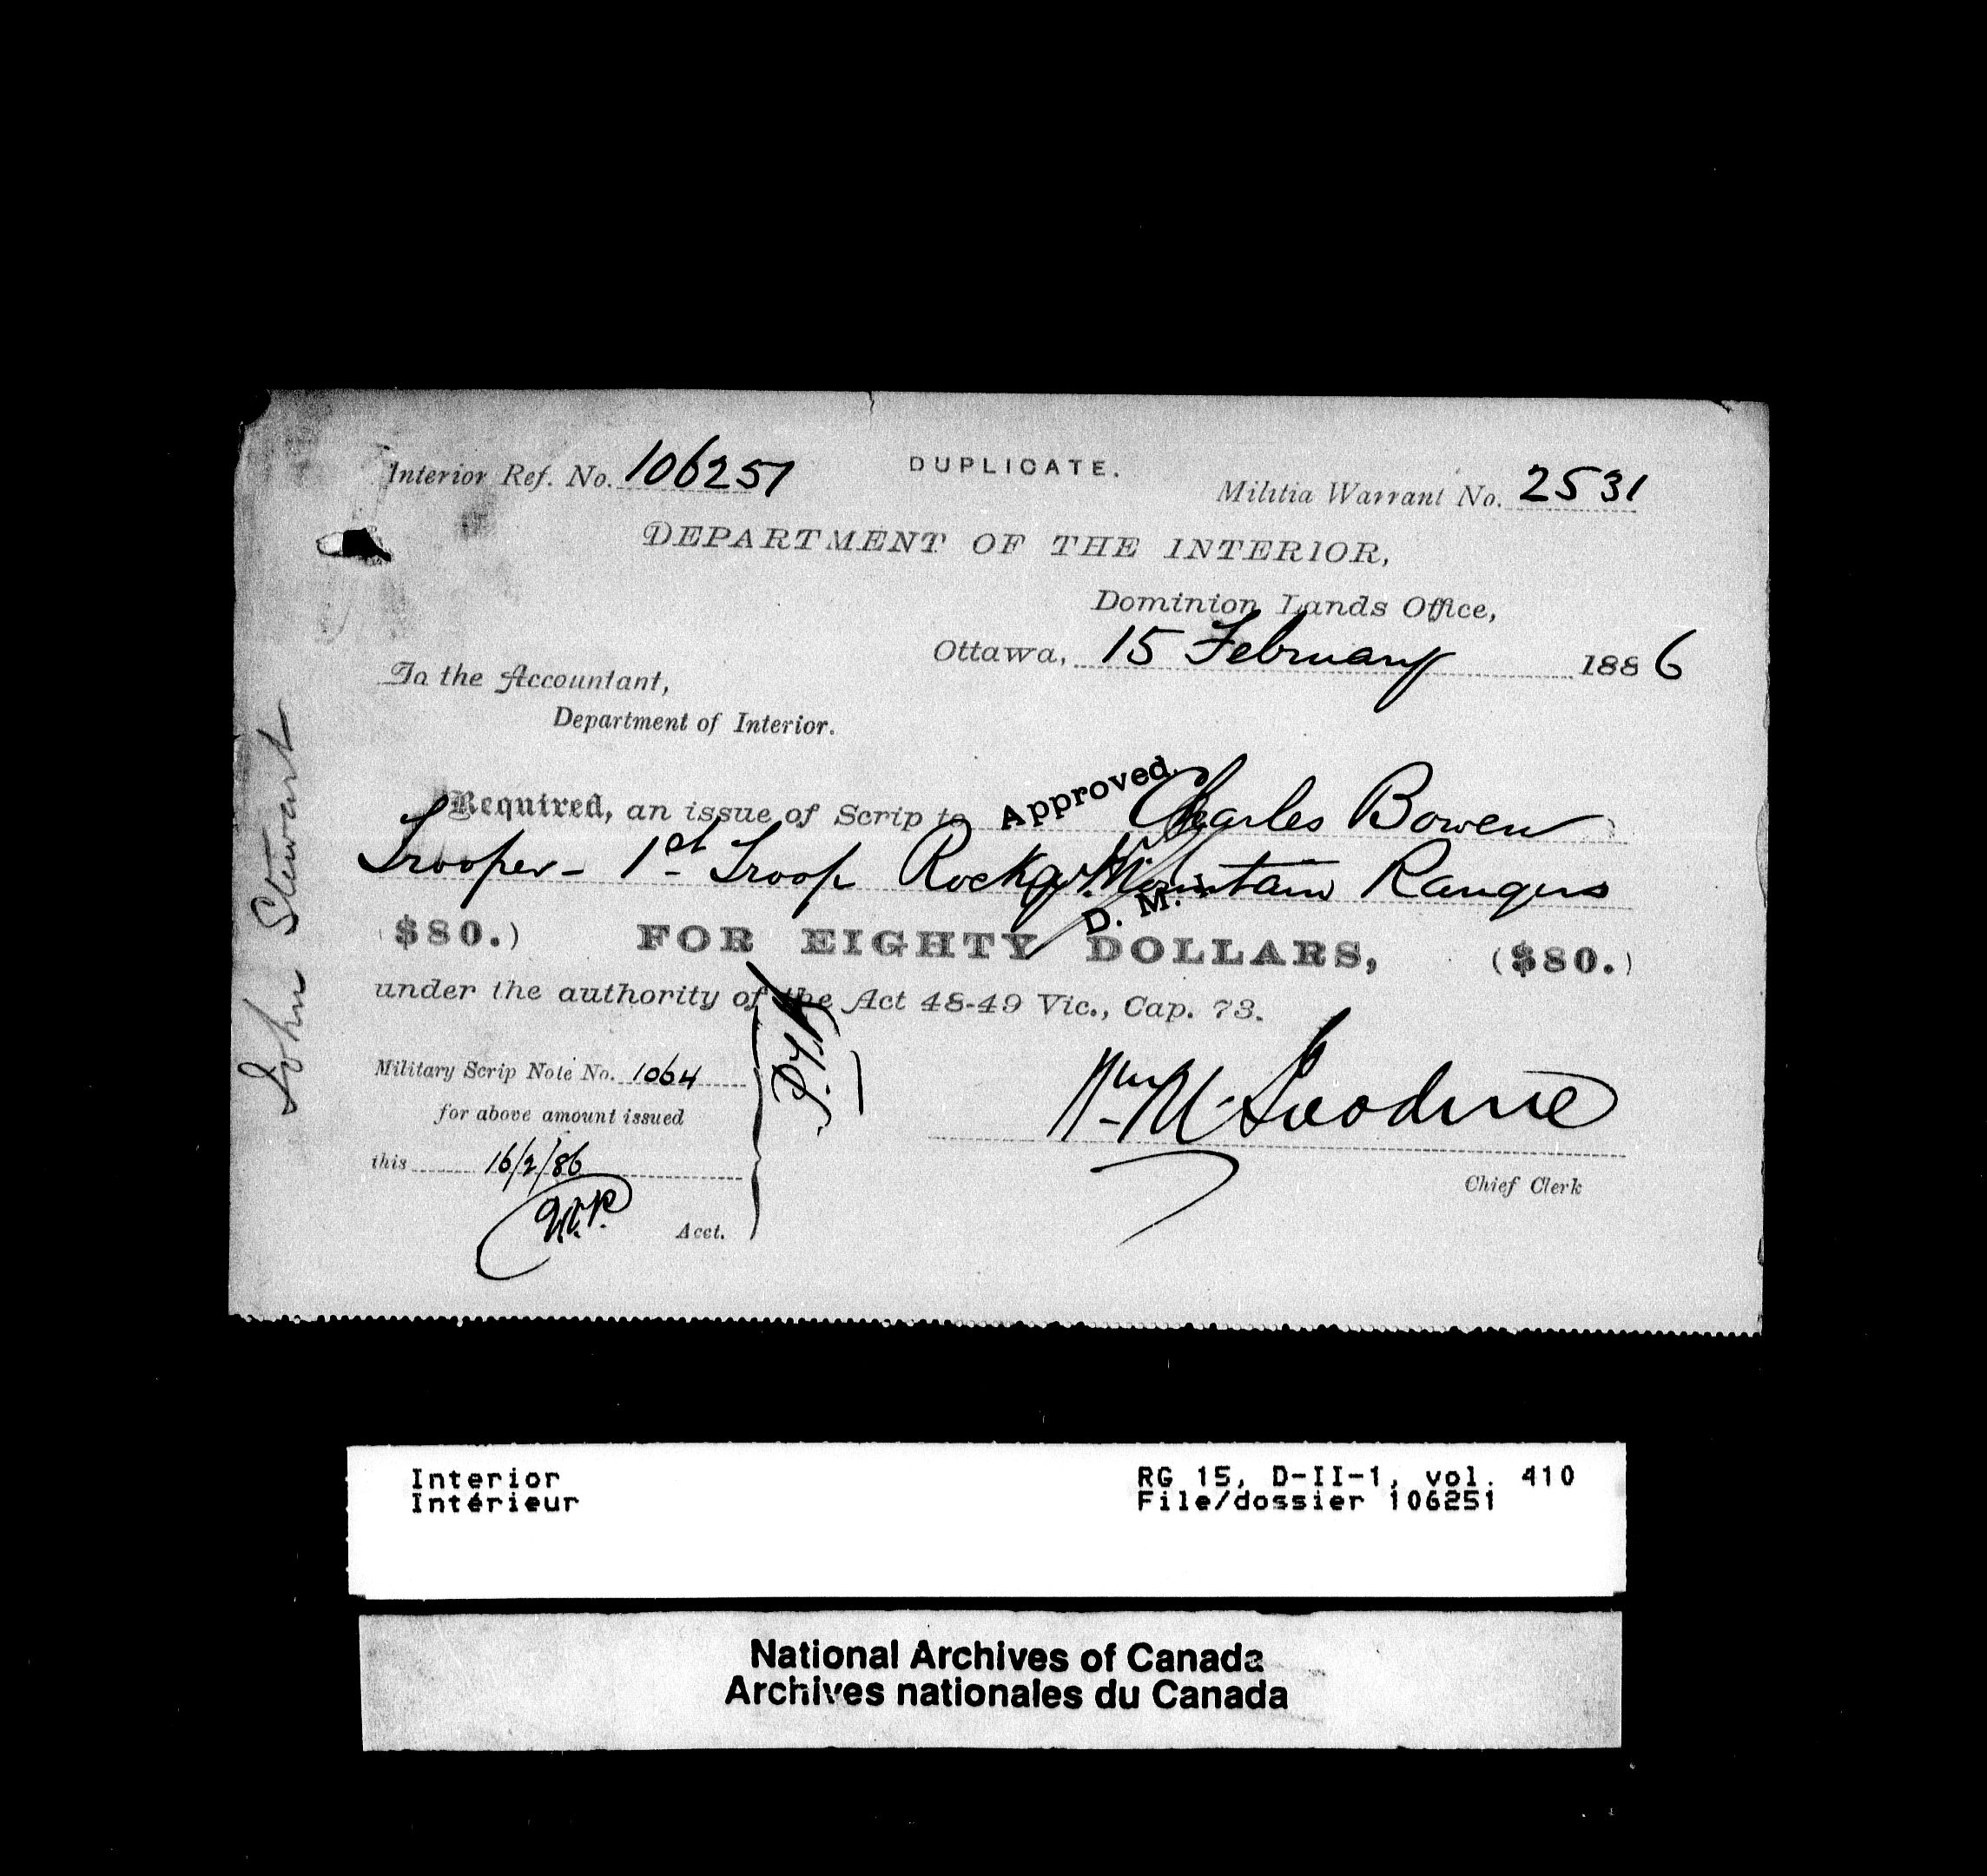 Interior Ref. No. 106251
DUPLICATE.
Militia Warrant No. 2531
DEPARTMENT OF THE INTERIOR,
Dominion Lands Office,
Ottawa, 15 February 1886
To the Accountant,
Department of Interior.
Approved
Required, an issue of Scrip to Charles Bowen
Trooper - 1st Troop Rocky Mountain Rangers
D. M. I.
$80.) FOR EIGHTY DOLLARS, ($80.)
under the authority of the Act 48-49 Vic., Cap. 73.
Military Scrip Note No. 1064
for above amount issued
this 16/2/86
Acct.
Wm M. Goodeve
Chief Clerk
John Stewart
Interior
Intérieur
RG 15, D-II-1, vol. 410
File/dossier 106251
National Archives of Canada
Archives nationales du Canada